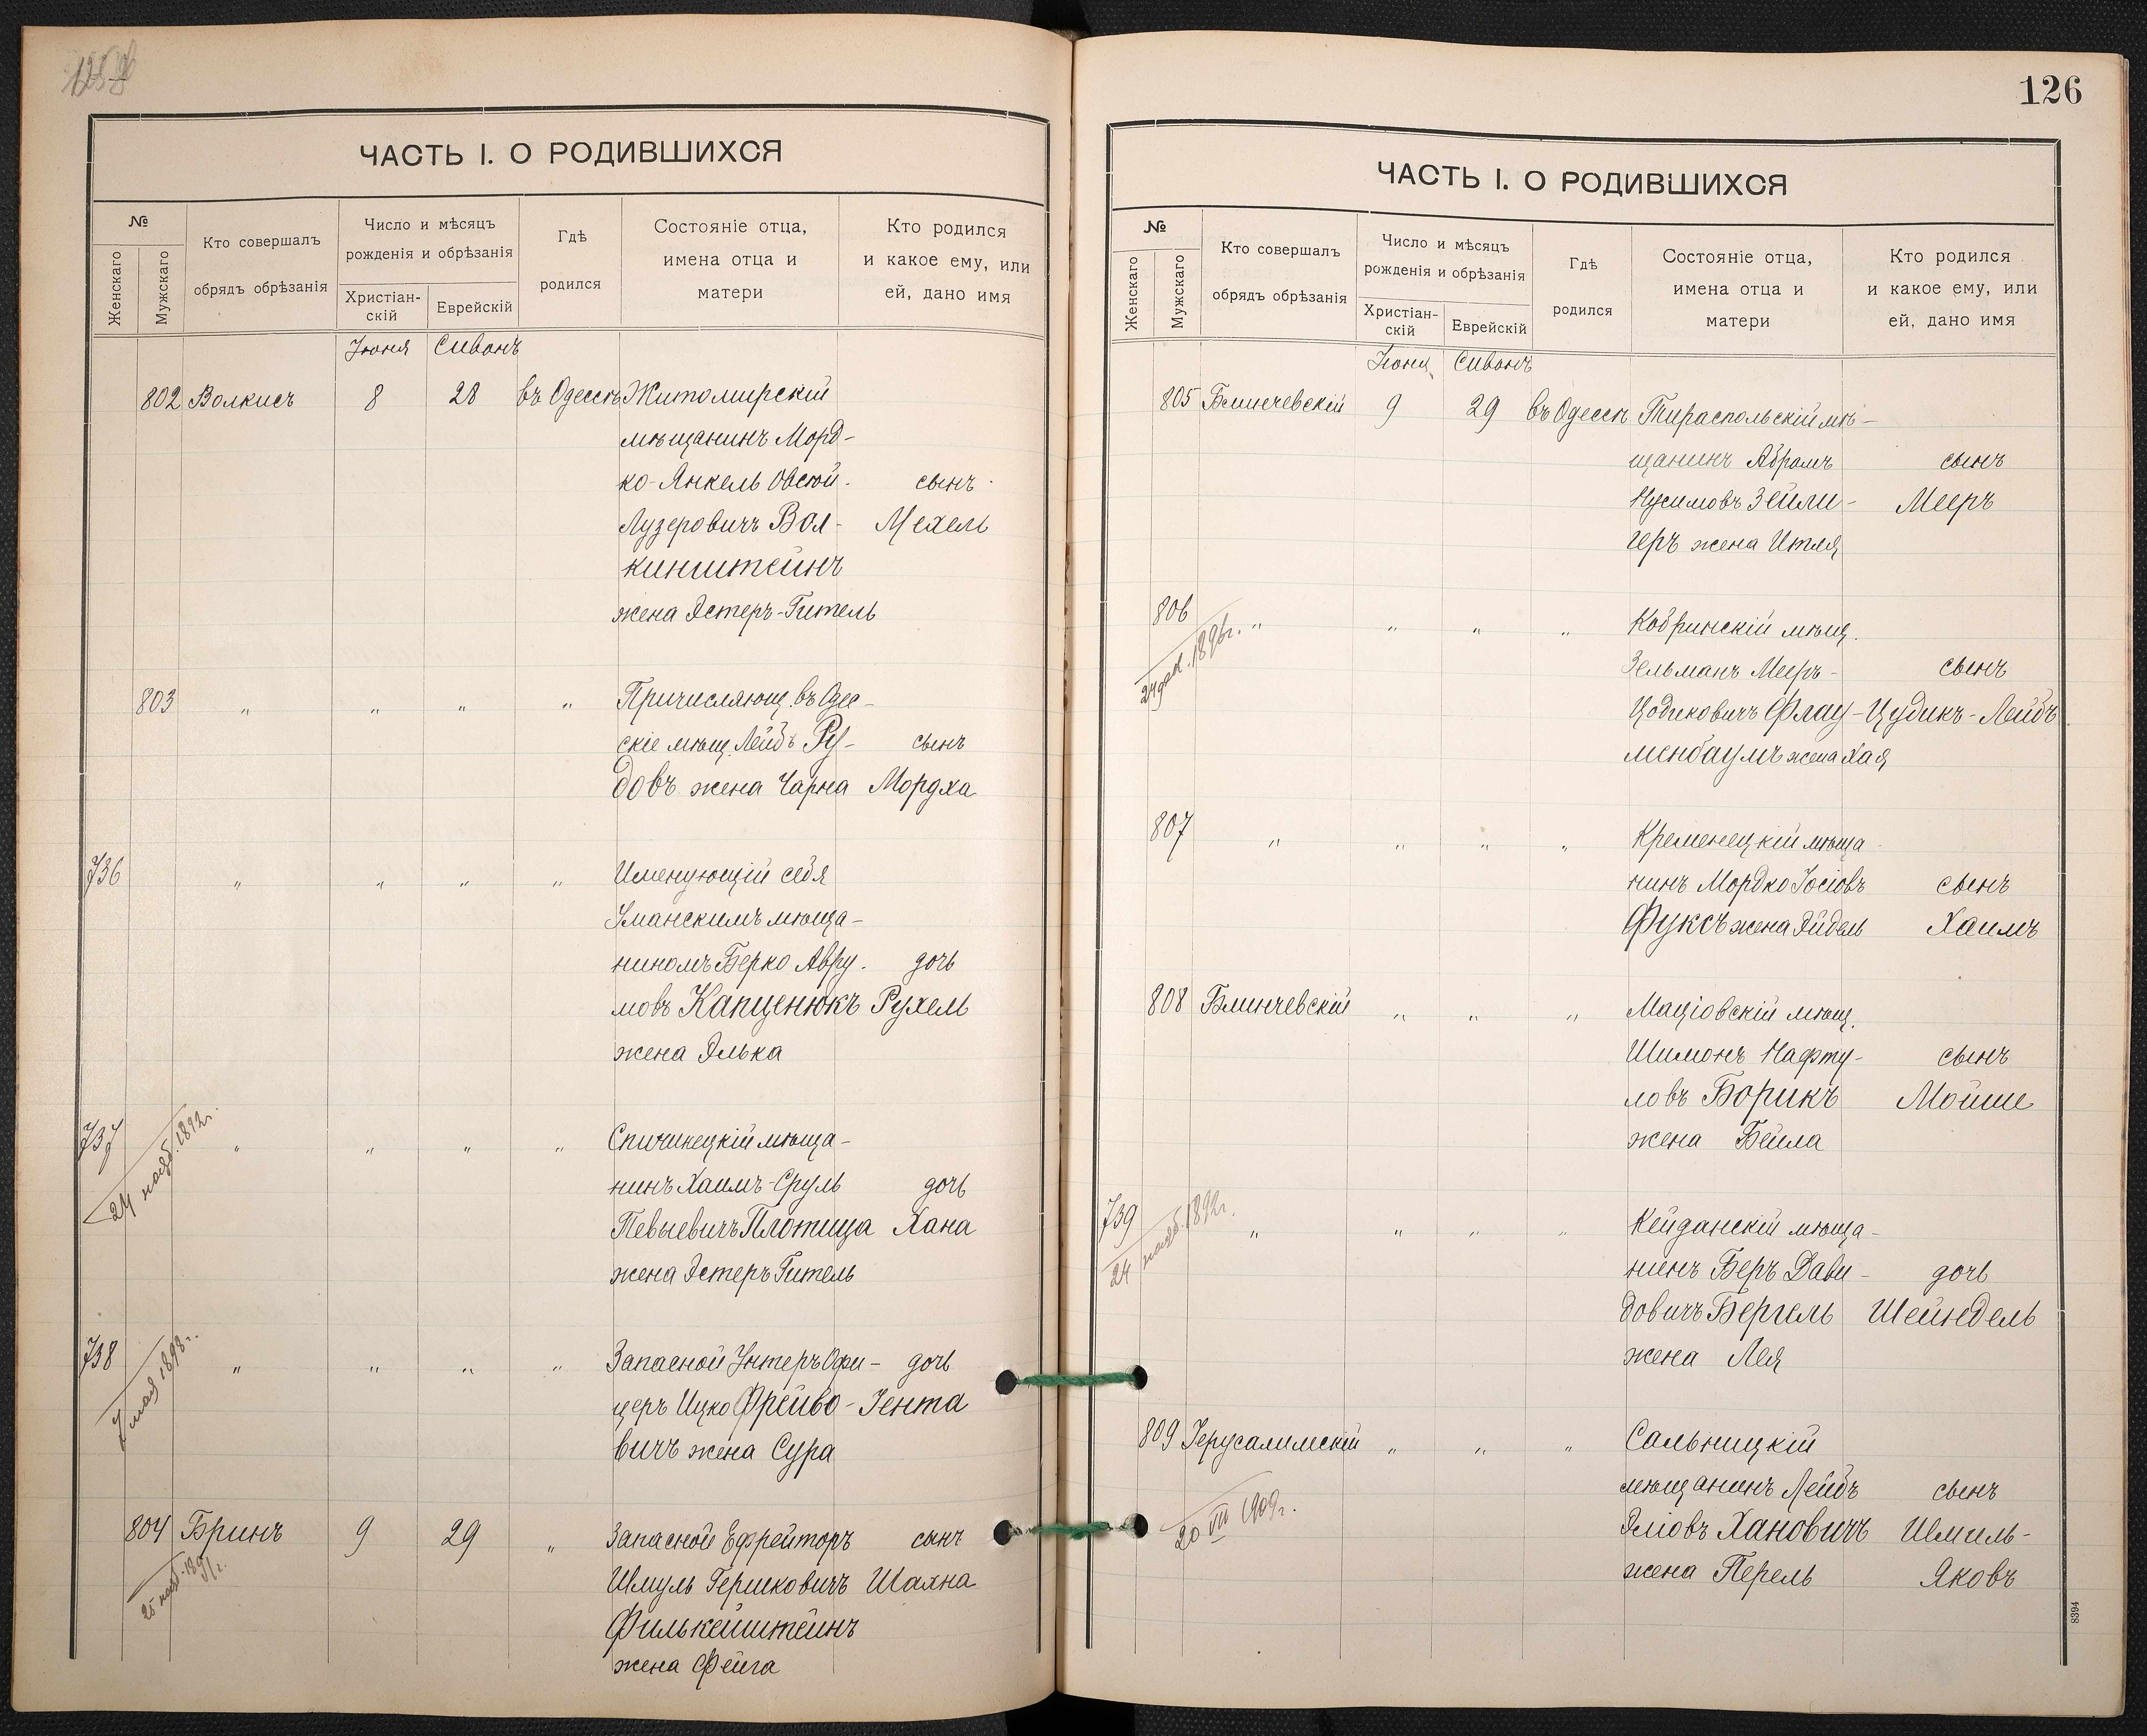 ЧАСТЬ I. О РОДИВШИХСЯ
№
Женскаго
Мужскаго
Кто совершалъ
обрядъ обрѣзанія
Число и мѣсяцъ
рожденія и обрѣзанія
Христіан-
скій
Еврейскій
Гдѣ
родился
Состояніе отца,
имена отца и
матери
Кто родился
и какое ему, или
ей, дано имя
Іюня Сивонъ
802 Волкисъ 8 28 въ Одессѣ Житомирскій
мѣщанинъ Морд-
ко-Янкель Овсій- сынъ
Лузеровичъ Вол- Мехель
кинштейнъ
жена Эстеръ-Гитель
803 " " " " Причисляющ. въ Одес-
скіе мѣщ. Лейбъ Ру- сынъ
довъ жена Чарна Мордха
736 " " " " Именующій себя
Уманскимъ мѣща-
ниномъ Берко Авру- дочь
мовъ Капценюкъ Рухель
жена Элька
737 " " " " Спичинецкій мѣща-
24 нояб. 1892г.
нинъ Хаимъ-Сруль дочь
Певыевичъ Плотица Хана
жена Эстеръ Гитель
738 " " " " Запасной Унтеръ Офи- дочь
7 мая 1898г.
церъ Ицко Фрейво- Іента
вичъ жена Сура
804 Бринъ 9 29 " Запасной Ефрейторъ сынъ
Шмуль Гершковичъ Шаяна
Филькейштейнъ
жена Фейга
126
ЧАСТЬ I. О РОДИВШИХСЯ
№
Женскаго
Мужскаго
Кто совершалъ
обрядъ обрѣзанія
Число и мѣсяцъ
рожденія и обрѣзанія
Христіан-
скій
Еврейскій
Гдѣ
родился
Состояніе отца,
имена отца и
матери
Кто родился
и какое ему, или
ей, дано имя
Іюня Сивонъ
805 Блинчевскій 9 29 въ Одессѣ Тираспольскій мѣ-
щанинъ Абрамъ сынъ
Нусимовъ Зейли- Мееръ
геръ жена Итля
806 " " " " Кобринскій мѣщ.
24 дек. 1896г.
Зельманъ Мееръ- сынъ
Цодиковичъ Флау- Цудикъ-Лейбъ
менбаумъ жена Хая
807 " " " " Кременецкій мѣща-
нинъ Мордко Іосіовъ сынъ
Фуксъ жена Эйдель Хаимъ
808 Блинчевскій " " " Маціовскій мѣщ.
Шимонъ Нафту- сынъ
ловъ Борикъ Мойше
жена Бейла
739 " " " " Кейданскій мѣща-
24 нояб. 1892г.
нинъ Беръ Дави- дочь
довичъ Бергель Шейндель
жена Лея
809 Іерусалимскій " " " Сальницкій
мѣщанинъ Лейбъ сынъ
20 VIII 1909г.
Эліовъ Хановичъ Шмиль-
жена Перель Яковъ
8394